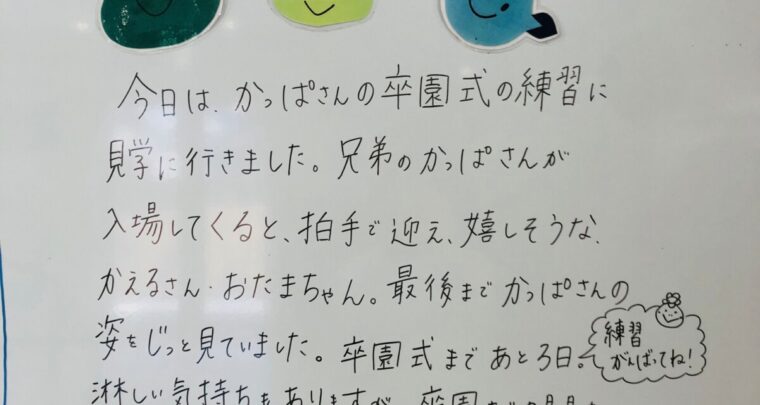 今日は、かっぱさんの卒園式の練習に
見学に行きました。兄弟のかっぱさんが
入場してくると、拍手で迎え、嬉しそうな、
かえるさん・おたまちゃん。最後までかっぱさんの
姿をじっと見ていました。卒園式まであと3日。
練習
がんばってね!
淋しい気持ちもありますが、卒園